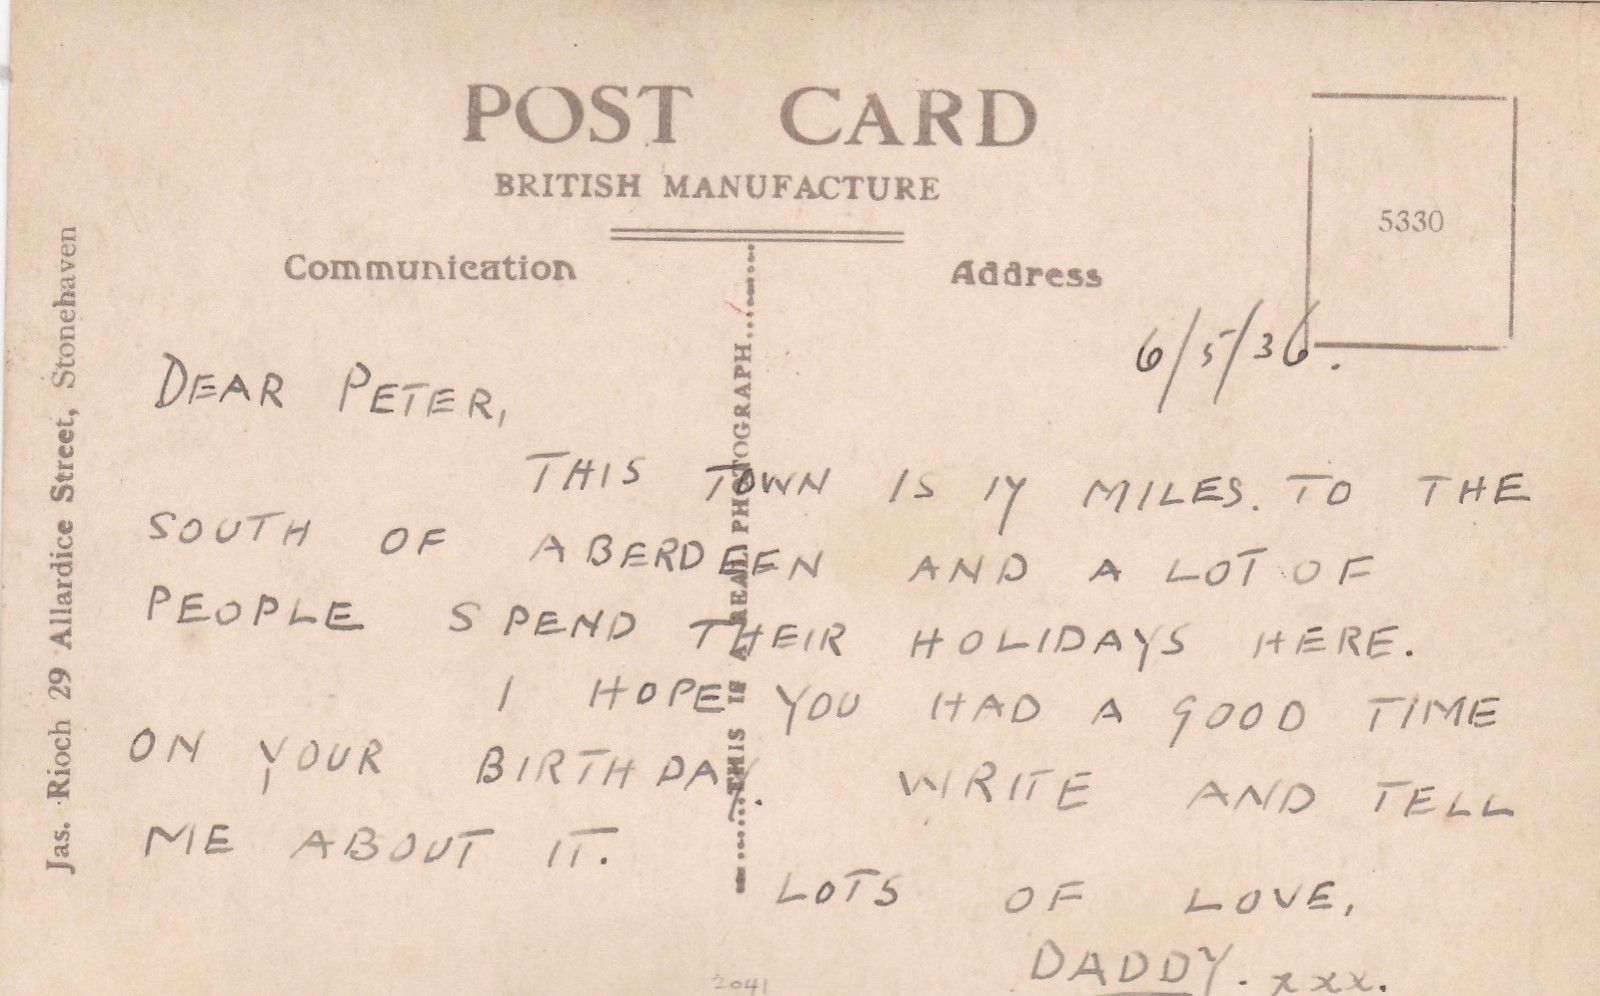 POST CARD
BRITISH MANUFACTURE
5330
Communication
Address
6/5/36.
DEAR PETER,
THIS TOWN IS 14 MILES. TO THE
SOUTH OF ABERDEEN AND A LOT OF
PEOPLE SPEND THEIR HOLIDAYS HERE.
I HOPE YOU HAD A GOOD TIME
ON YOUR BIRTHDAY. WRITE AND TELL
ME ABOUT IT.
LOTS OF LOVE,
DADDY. xxx.
THIS IS A REAL PHOTOGRAPH
Jas. Rioch 29 Allardice Street, Stonehaven
2041